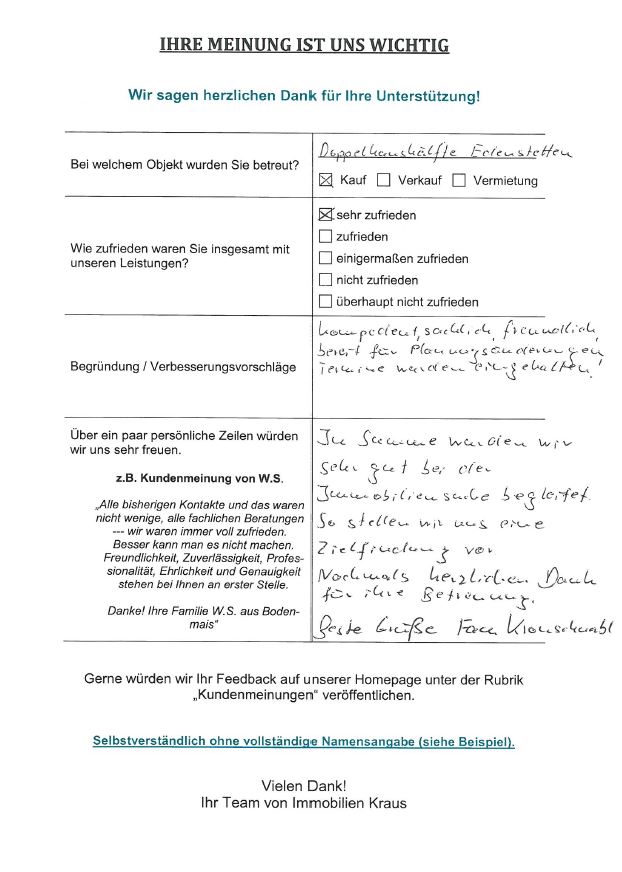 IHRE MEINUNG IST UNS WICHTIG
Wir sagen herzlichen Dank für Ihre Unterstützung!
Bei welchem Objekt wurden Sie betreut?
Doppelhaushälfte Edenstetten
Kauf Verkauf Vermietung
Wie zufrieden waren Sie insgesamt mit
unseren Leistungen?
sehr zufrieden
zufrieden
einigermaßen zufrieden
nicht zufrieden
überhaupt nicht zufrieden
Begründung / Verbesserungsvorschläge
kompetent, sachlich, freundlich,
bereit für Planungsänderungen
Termine wurden eingehalten!
Über ein paar persönliche Zeilen würden
wir uns sehr freuen.
z.B. Kundenmeinung von W.S.
„Alle bisherigen Kontakte und das waren
nicht wenige, alle fachlichen Beratungen
--- wir waren immer voll zufrieden.
Besser kann man es nicht machen.
Freundlichkeit, Zuverlässigkeit, Profes-
sionalität, Ehrlichkeit und Genauigkeit
stehen bei Ihnen an erster Stelle.
Danke! Ihre Familie W.S. aus Boden-
mais“
In Summe wurden wir
sehr gut bei der
Immobiliensuche begleitet.
So stellen wir uns eine
Zielfindung vor
Nochmals herzlichen Dank
für ihre Betreuung.
Beste Grüße Fam
Gerne würden wir Ihr Feedback auf unserer Homepage unter der Rubrik
„Kundenmeinungen“ veröffentlichen.
Selbstverständlich ohne vollständige Namensangabe (siehe Beispiel).
Vielen Dank!
Ihr Team von Immobilien Kraus